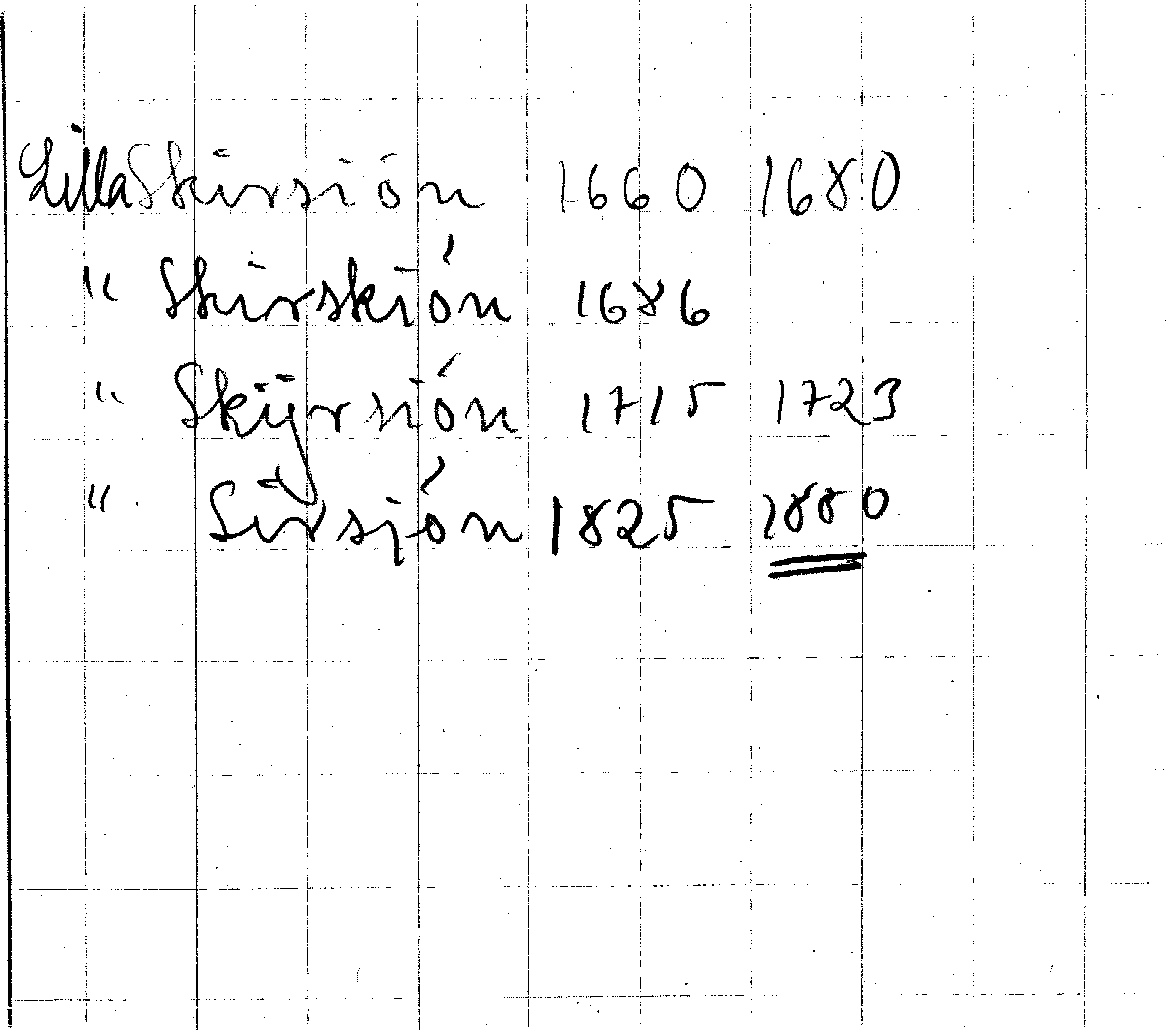 Lilla Skirsiön 1660 1680
" Skirskiön 1686
" Skijrsiön 1715 1723
" Sirsjön 1825 1880